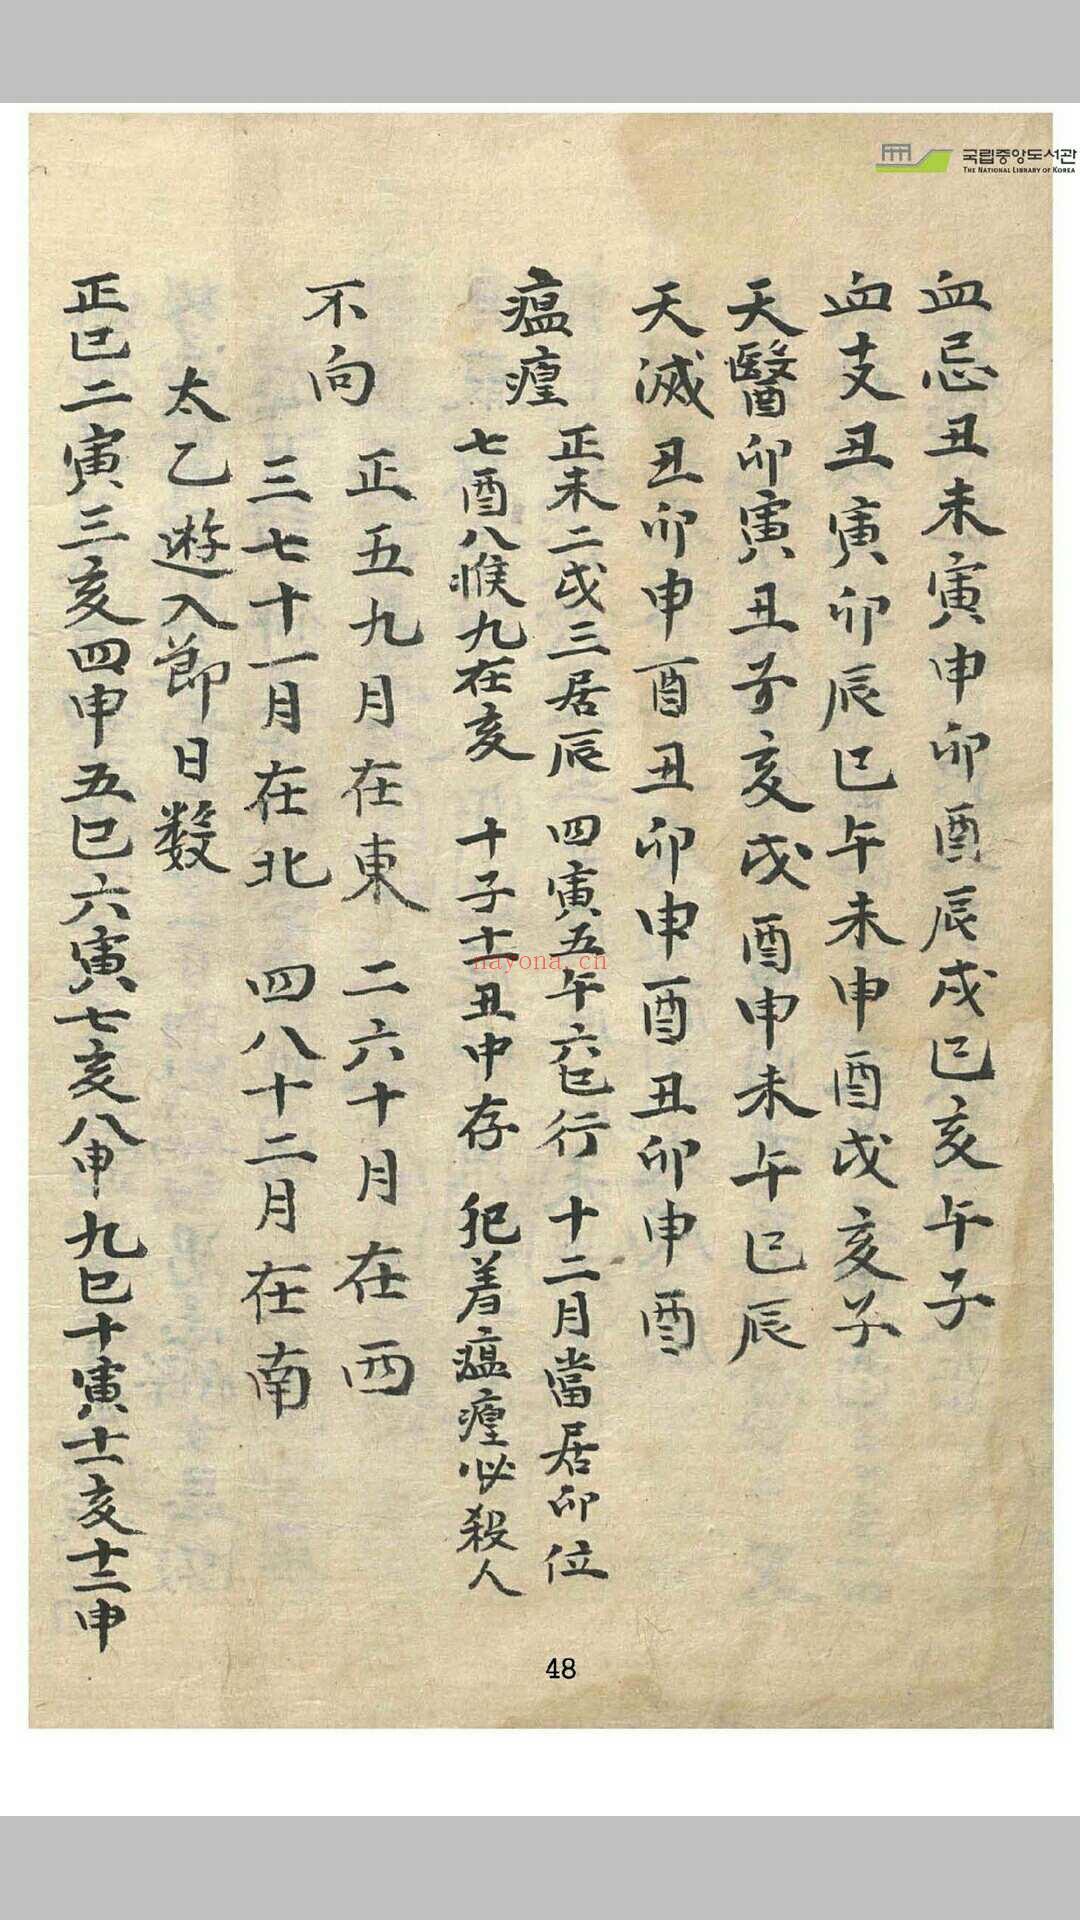 국립중앙도서관
THE NATIONAL LIBRARY OF KOREA
血忌丑未寅申卯酉辰戌巳亥午子
血支丑寅卯辰巳午未申酉戌亥子
天醫卯寅丑子亥戌酉申未午巳辰
天滅丑卯申酉丑卯申酉丑卯申酉
瘟瘴
正未二戌三居辰 四寅五午六巳行 十二月當居卯位
七酉八猴九在亥 十子十一丑中存 犯着瘟瘴必殺人
不向
正五九月在東 二六十月在西
三七十一月在北 四八十二月在南
太乙遊入節日数
正巳二寅三亥四申五巳六寅七亥八申九巳十寅十一亥十二申
nayona.cn
48